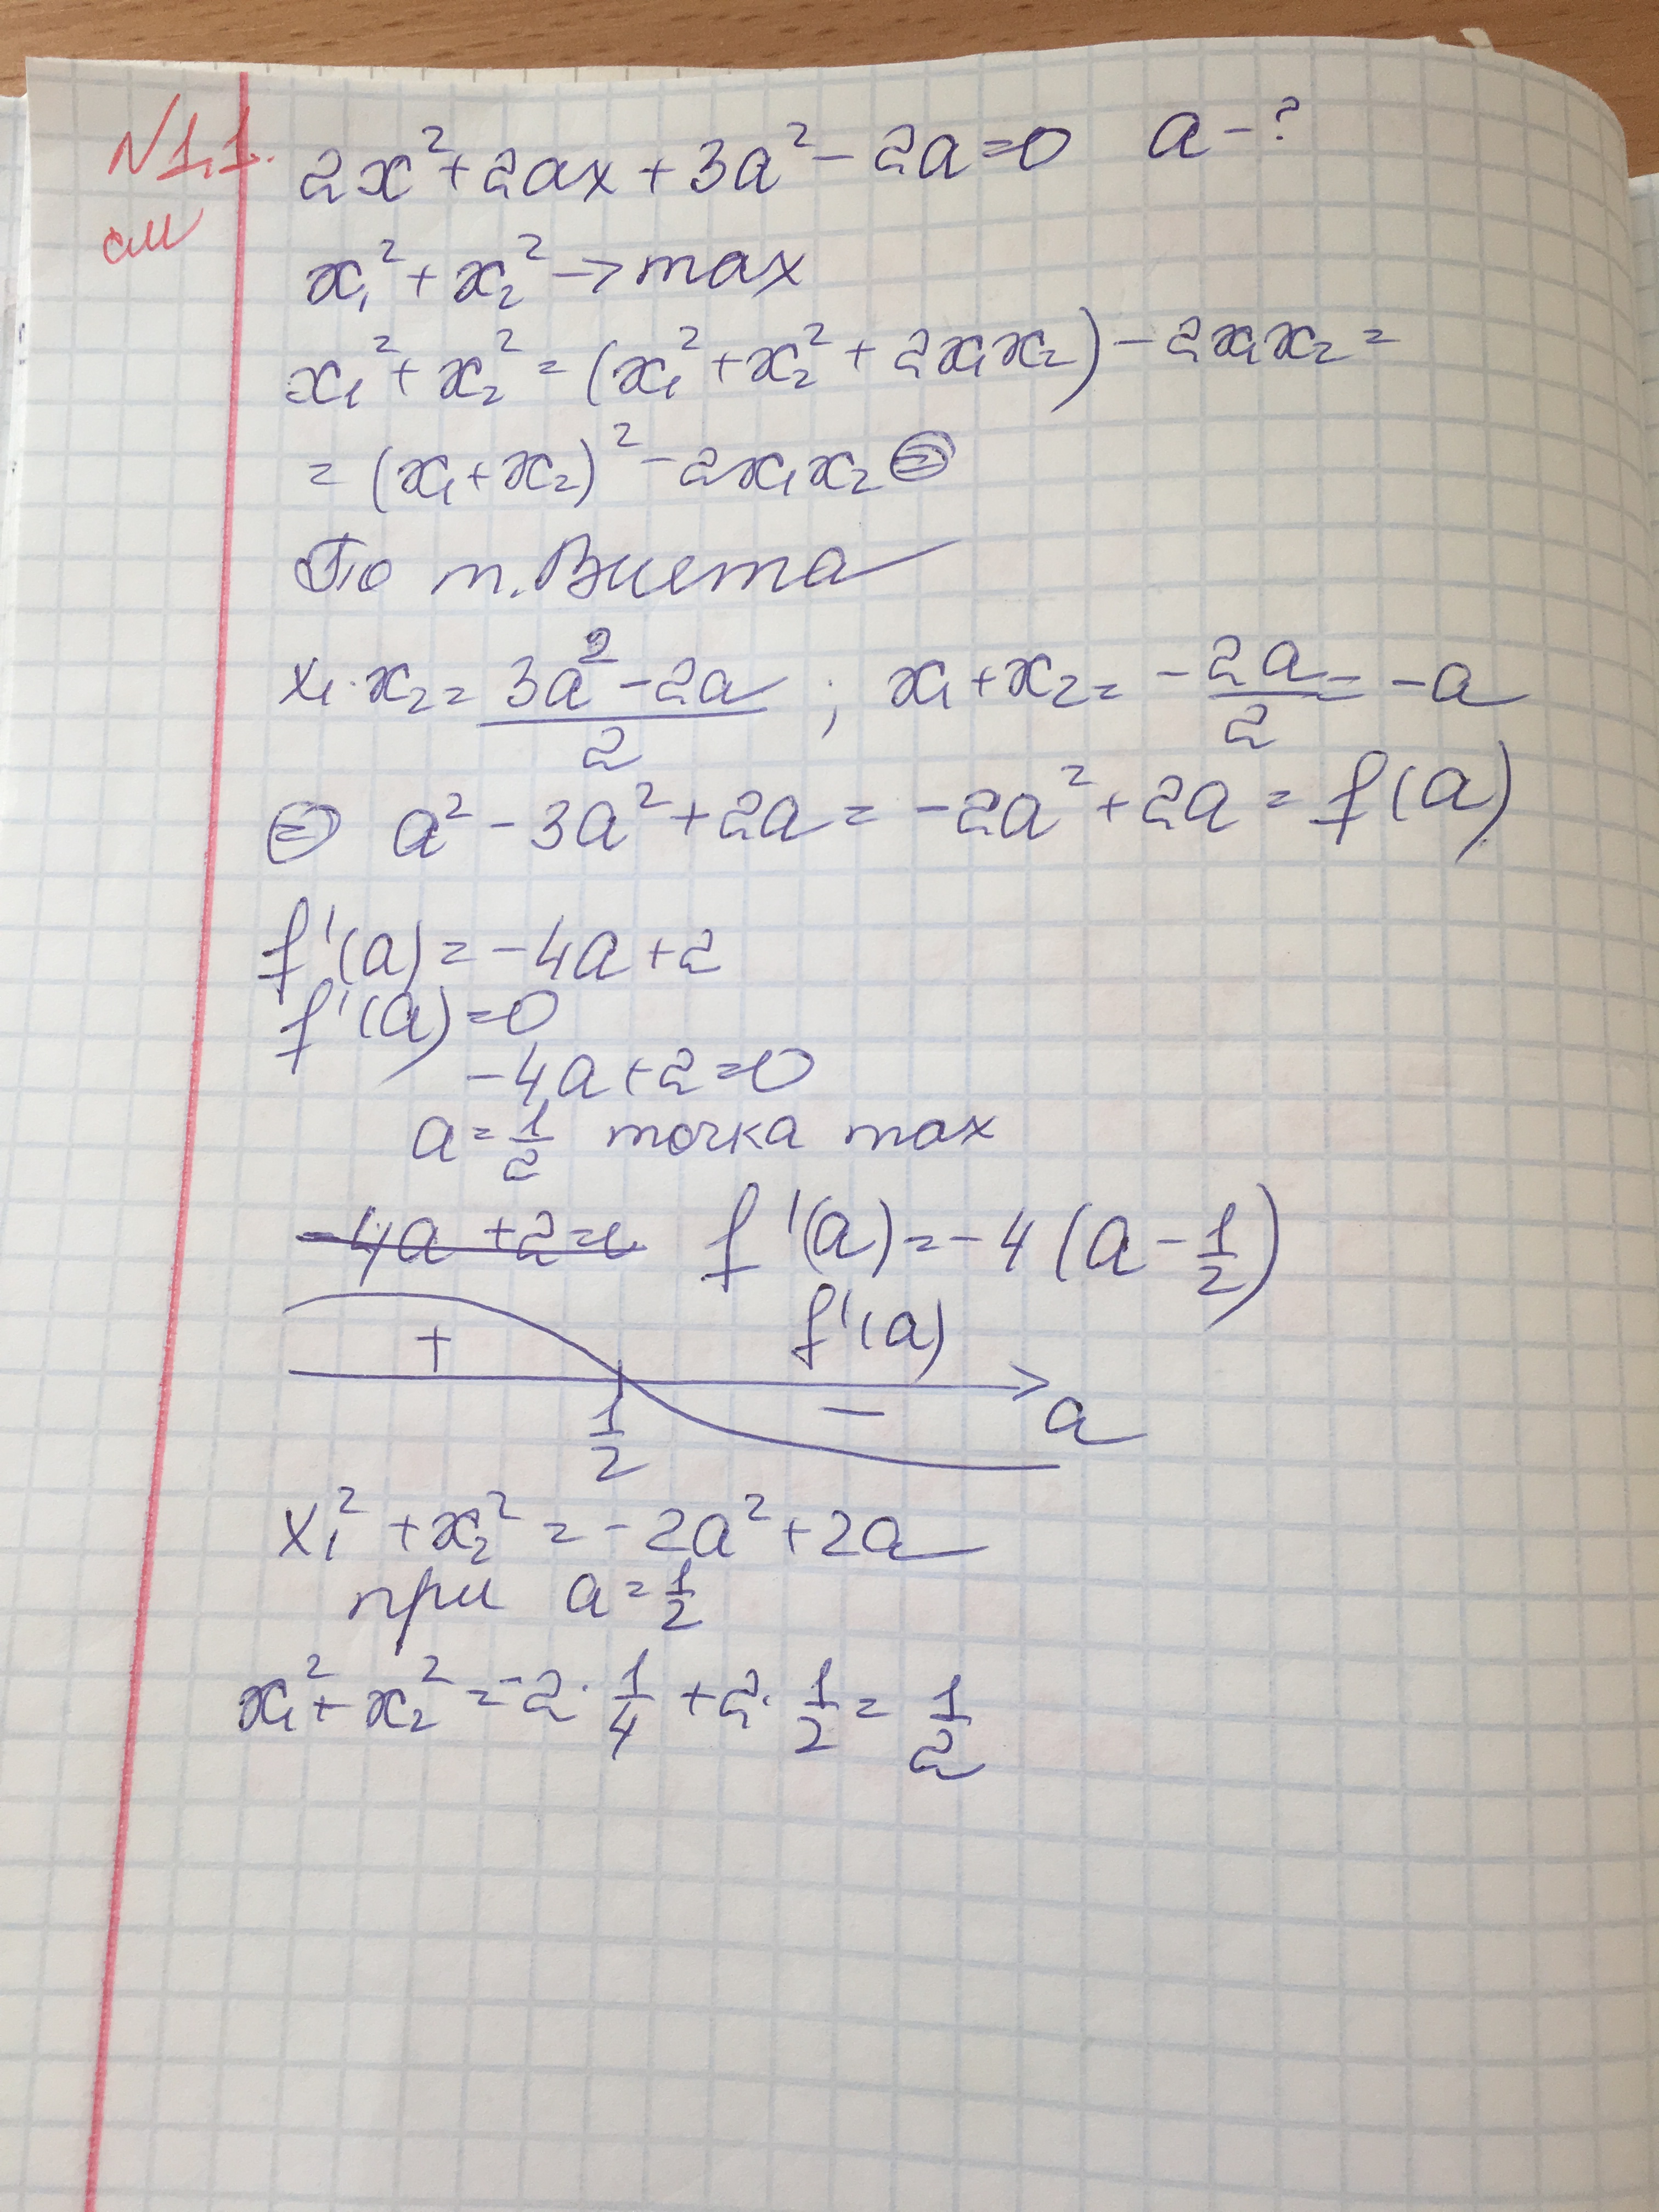 N1.1. 2x² + 2ax + 3a² - 2a = 0 a - ?
x₁² + x₂² → max
x₁² + x₂² = (x₁² + x₂² + 2x₁x₂) - 2x₁x₂ =
= (x₁ + x₂)² - 2x₁x₂ ⊜
По т. Виета
x₁ · x₂ = (3a² - 2a)/2 ; x₁ + x₂ = -2a/2 = -a
⊜ a² - 3a² + 2a = -2a² + 2a = f(a)
f'(a) = -4a + 2
f'(a) = 0
-4a + 2 = 0
a = 1/2 точка max
-4a + 2 = f'(a) = -4(a - 1/2)
+ f'(a)
1/2 - a
x₁² + x₂² = -2a² + 2a
при a = 1/2
x₁² + x₂² = -2 · 1/4 + 2 · 1/2 = 1/2